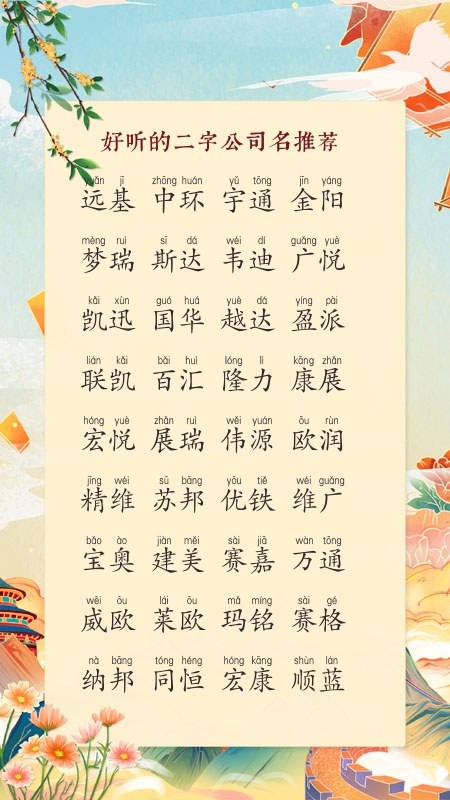 好听的二字公司名推荐
yuǎn jī zhōng huán yǔ tōng jīn yáng
远基 中环 宇通 金阳
mèng ruì sī dá wéi dí guǎng yuè
梦瑞 斯达 韦迪 广悦
kǎi xùn guó huá yuè dá yíng pài
凯迅 国华 越达 盈派
lián kǎi bǎi huì lóng lì kāng zhǎn
联凯 百汇 隆力 康展
hóng yuè zhǎn ruì wěi yuán ōu rùn
宏悦 展瑞 伟源 欧润
jīng wéi sū bāng yōu tiě wéi guǎng
精维 苏邦 优铁 维广
bǎo ào jiàn měi sài jiā wàn tōng
宝奥 建美 赛嘉 万通
wēi ōu lái ōu mǎ míng sài gé
威欧 莱欧 玛铭 赛格
nà bāng tóng héng hóng kāng shùn lán
纳邦 同恒 宏康 顺蓝